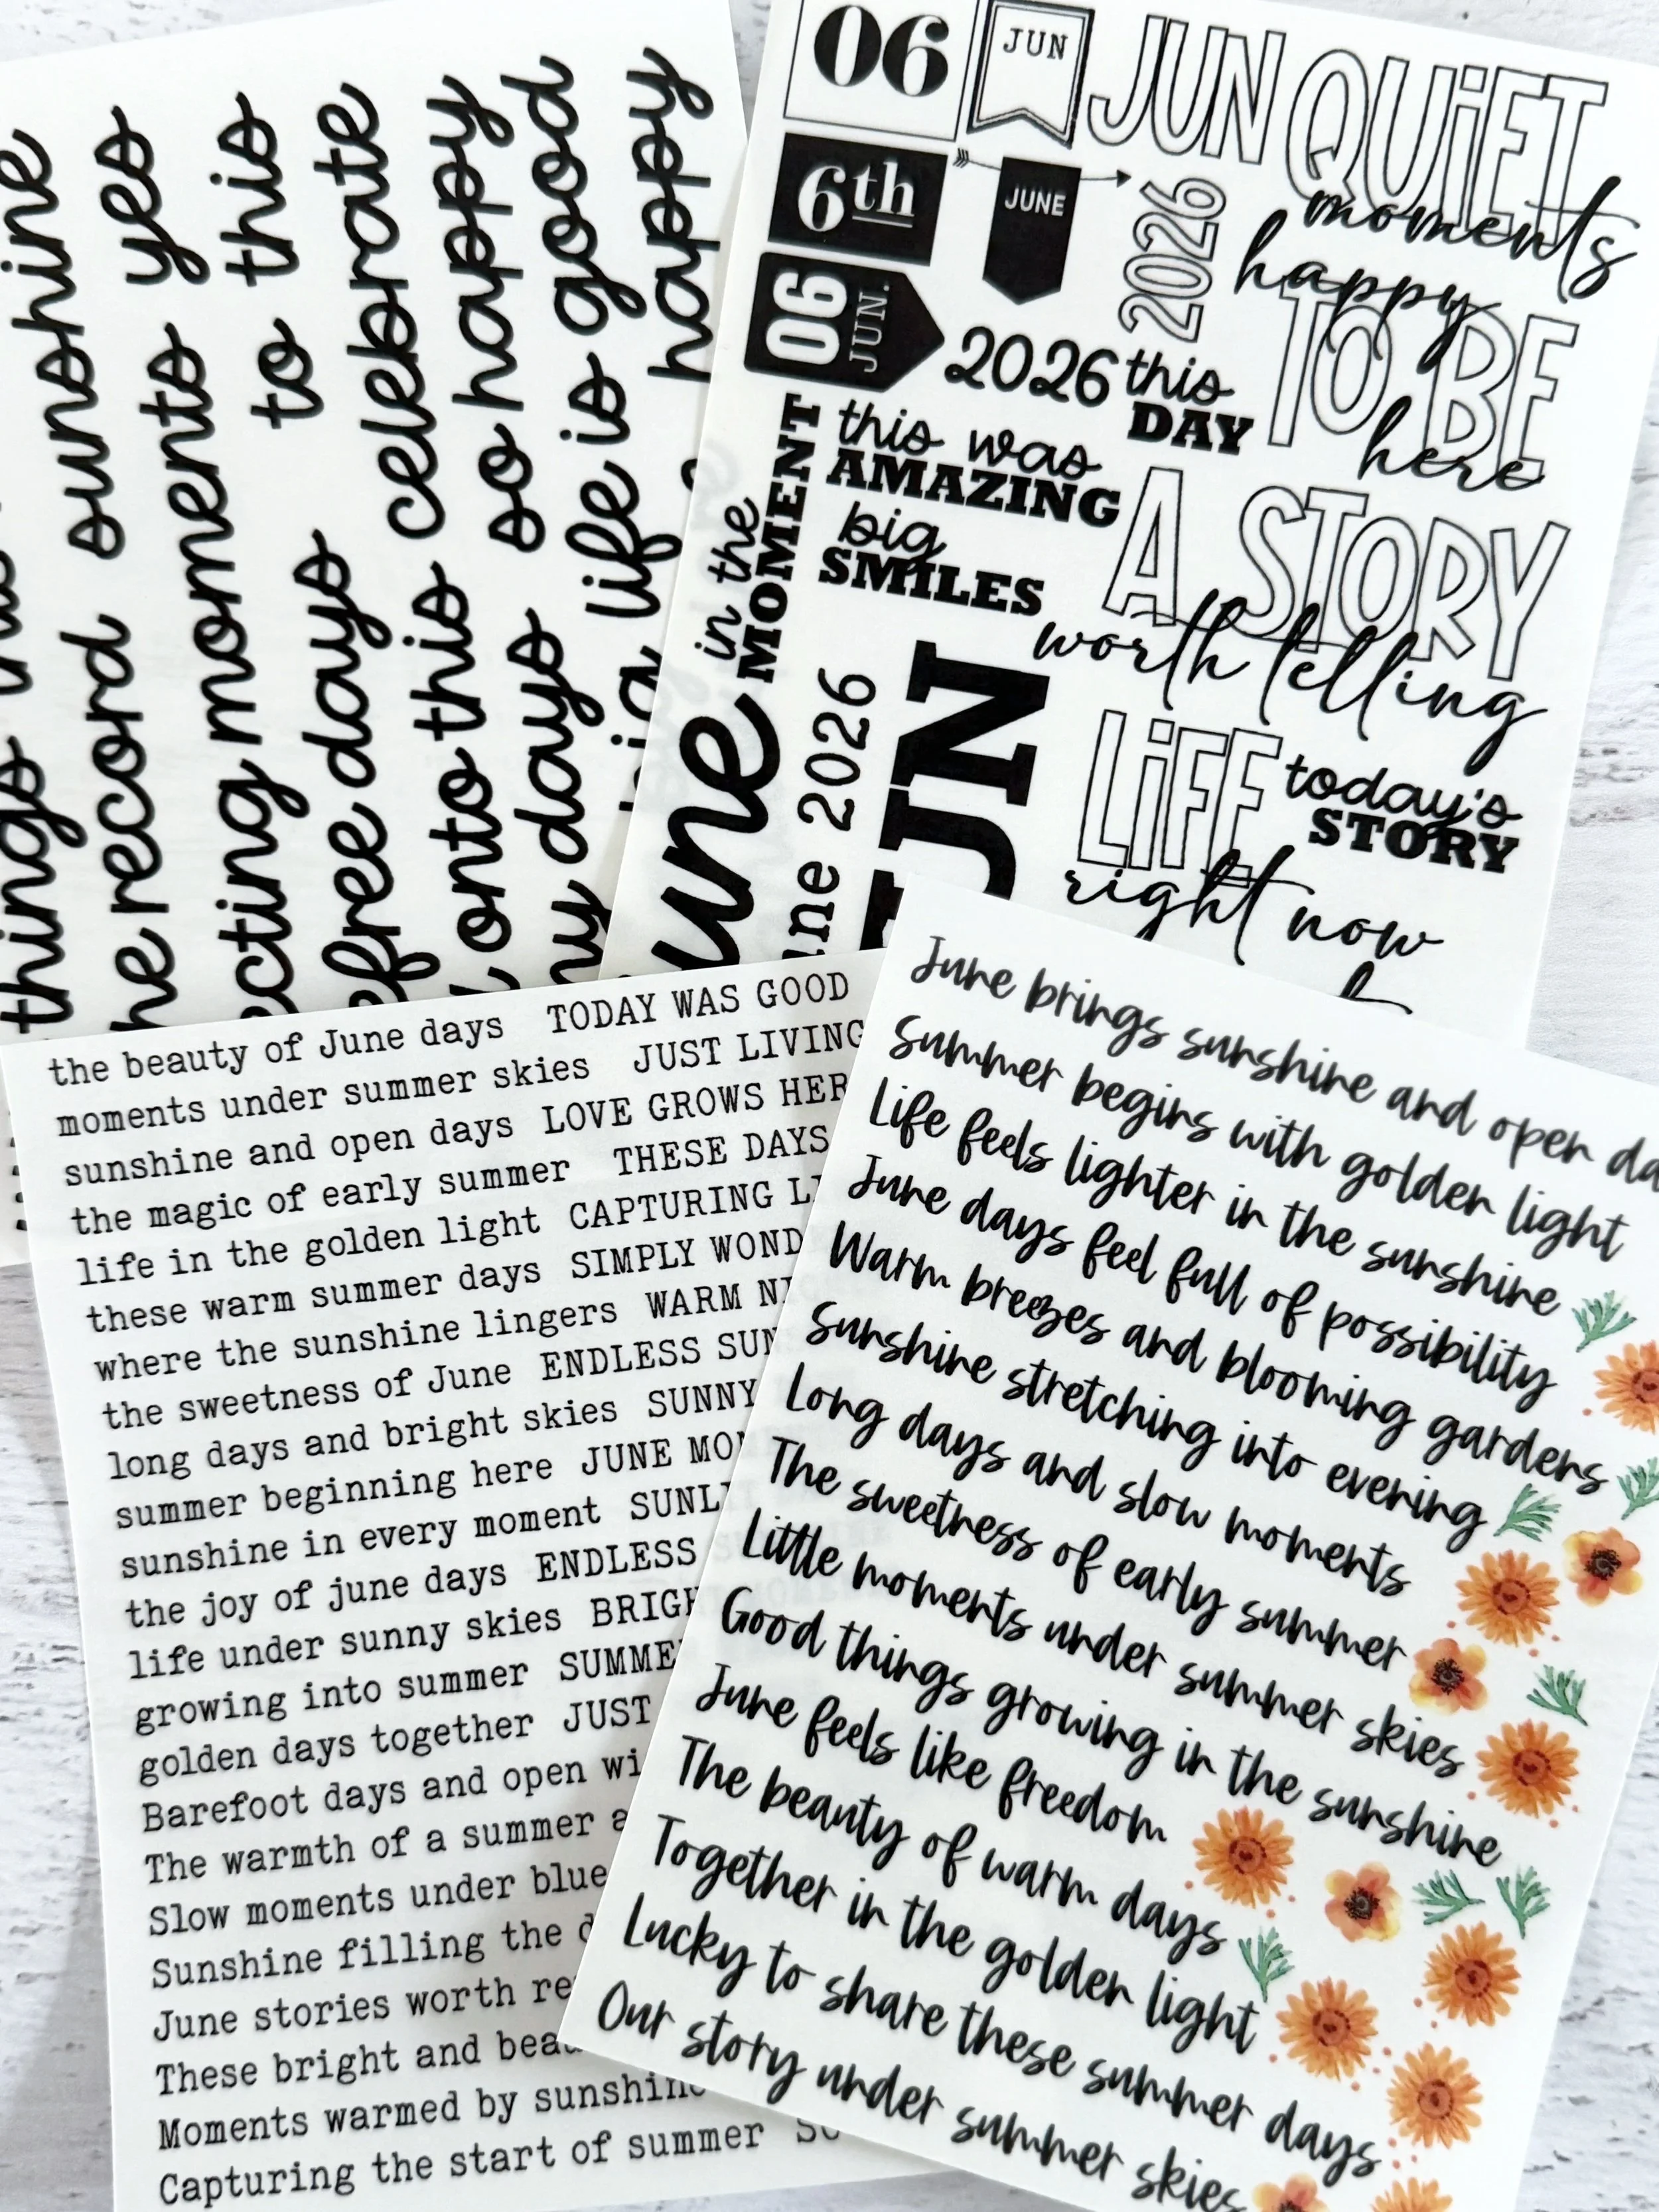 things this sunshine
the record yes
moments to this
free days celebrate
onto this so happy
days life is good
happy
06
JUN
JUN
QUiET
moments
6th
JUNE
2026
happy
TO BE
here
06
JUN.
2026
this
DAY
this was
AMAZING
in the
MOMENT
big
SMILES
A STORY
worth telling
June
June 2026
JUN
LiFE
right now
today's
STORY
the beauty of June days TODAY WAS GOOD
moments under summer skies JUST LIVING
sunshine and open days LOVE GROWS
the magic of early summer THESE DAYS
life in the golden light CAPTURING
these warm summer days SIMPLY
where the sunshine lingers WARM
the sweetness of June ENDLESS
long days and bright skies SUNNY
summer beginning here JUNE
sunshine in every moment
the joy of june days ENDLESS
life under sunny skies
growing into summer
golden days together JUST
Barefoot days and open
The warmth of a summer
Slow moments under blue
Sunshine filling the
June stories worth
These bright and
Moments warmed by sunshine
Capturing the start of summer
June brings sunshine and open
Summer begins with golden light
Life feels lighter in the sunshine
June days feel full of possibility
Warm breezes and blooming gardens
Sunshine stretching into evening
Long days and slow moments
The sweetness of early summer
Little moments under summer skies
Good things growing in the sunshine
June feels like freedom
The beauty of warm days
Together in the golden light
Lucky to share these summer days
Our story under summer skies